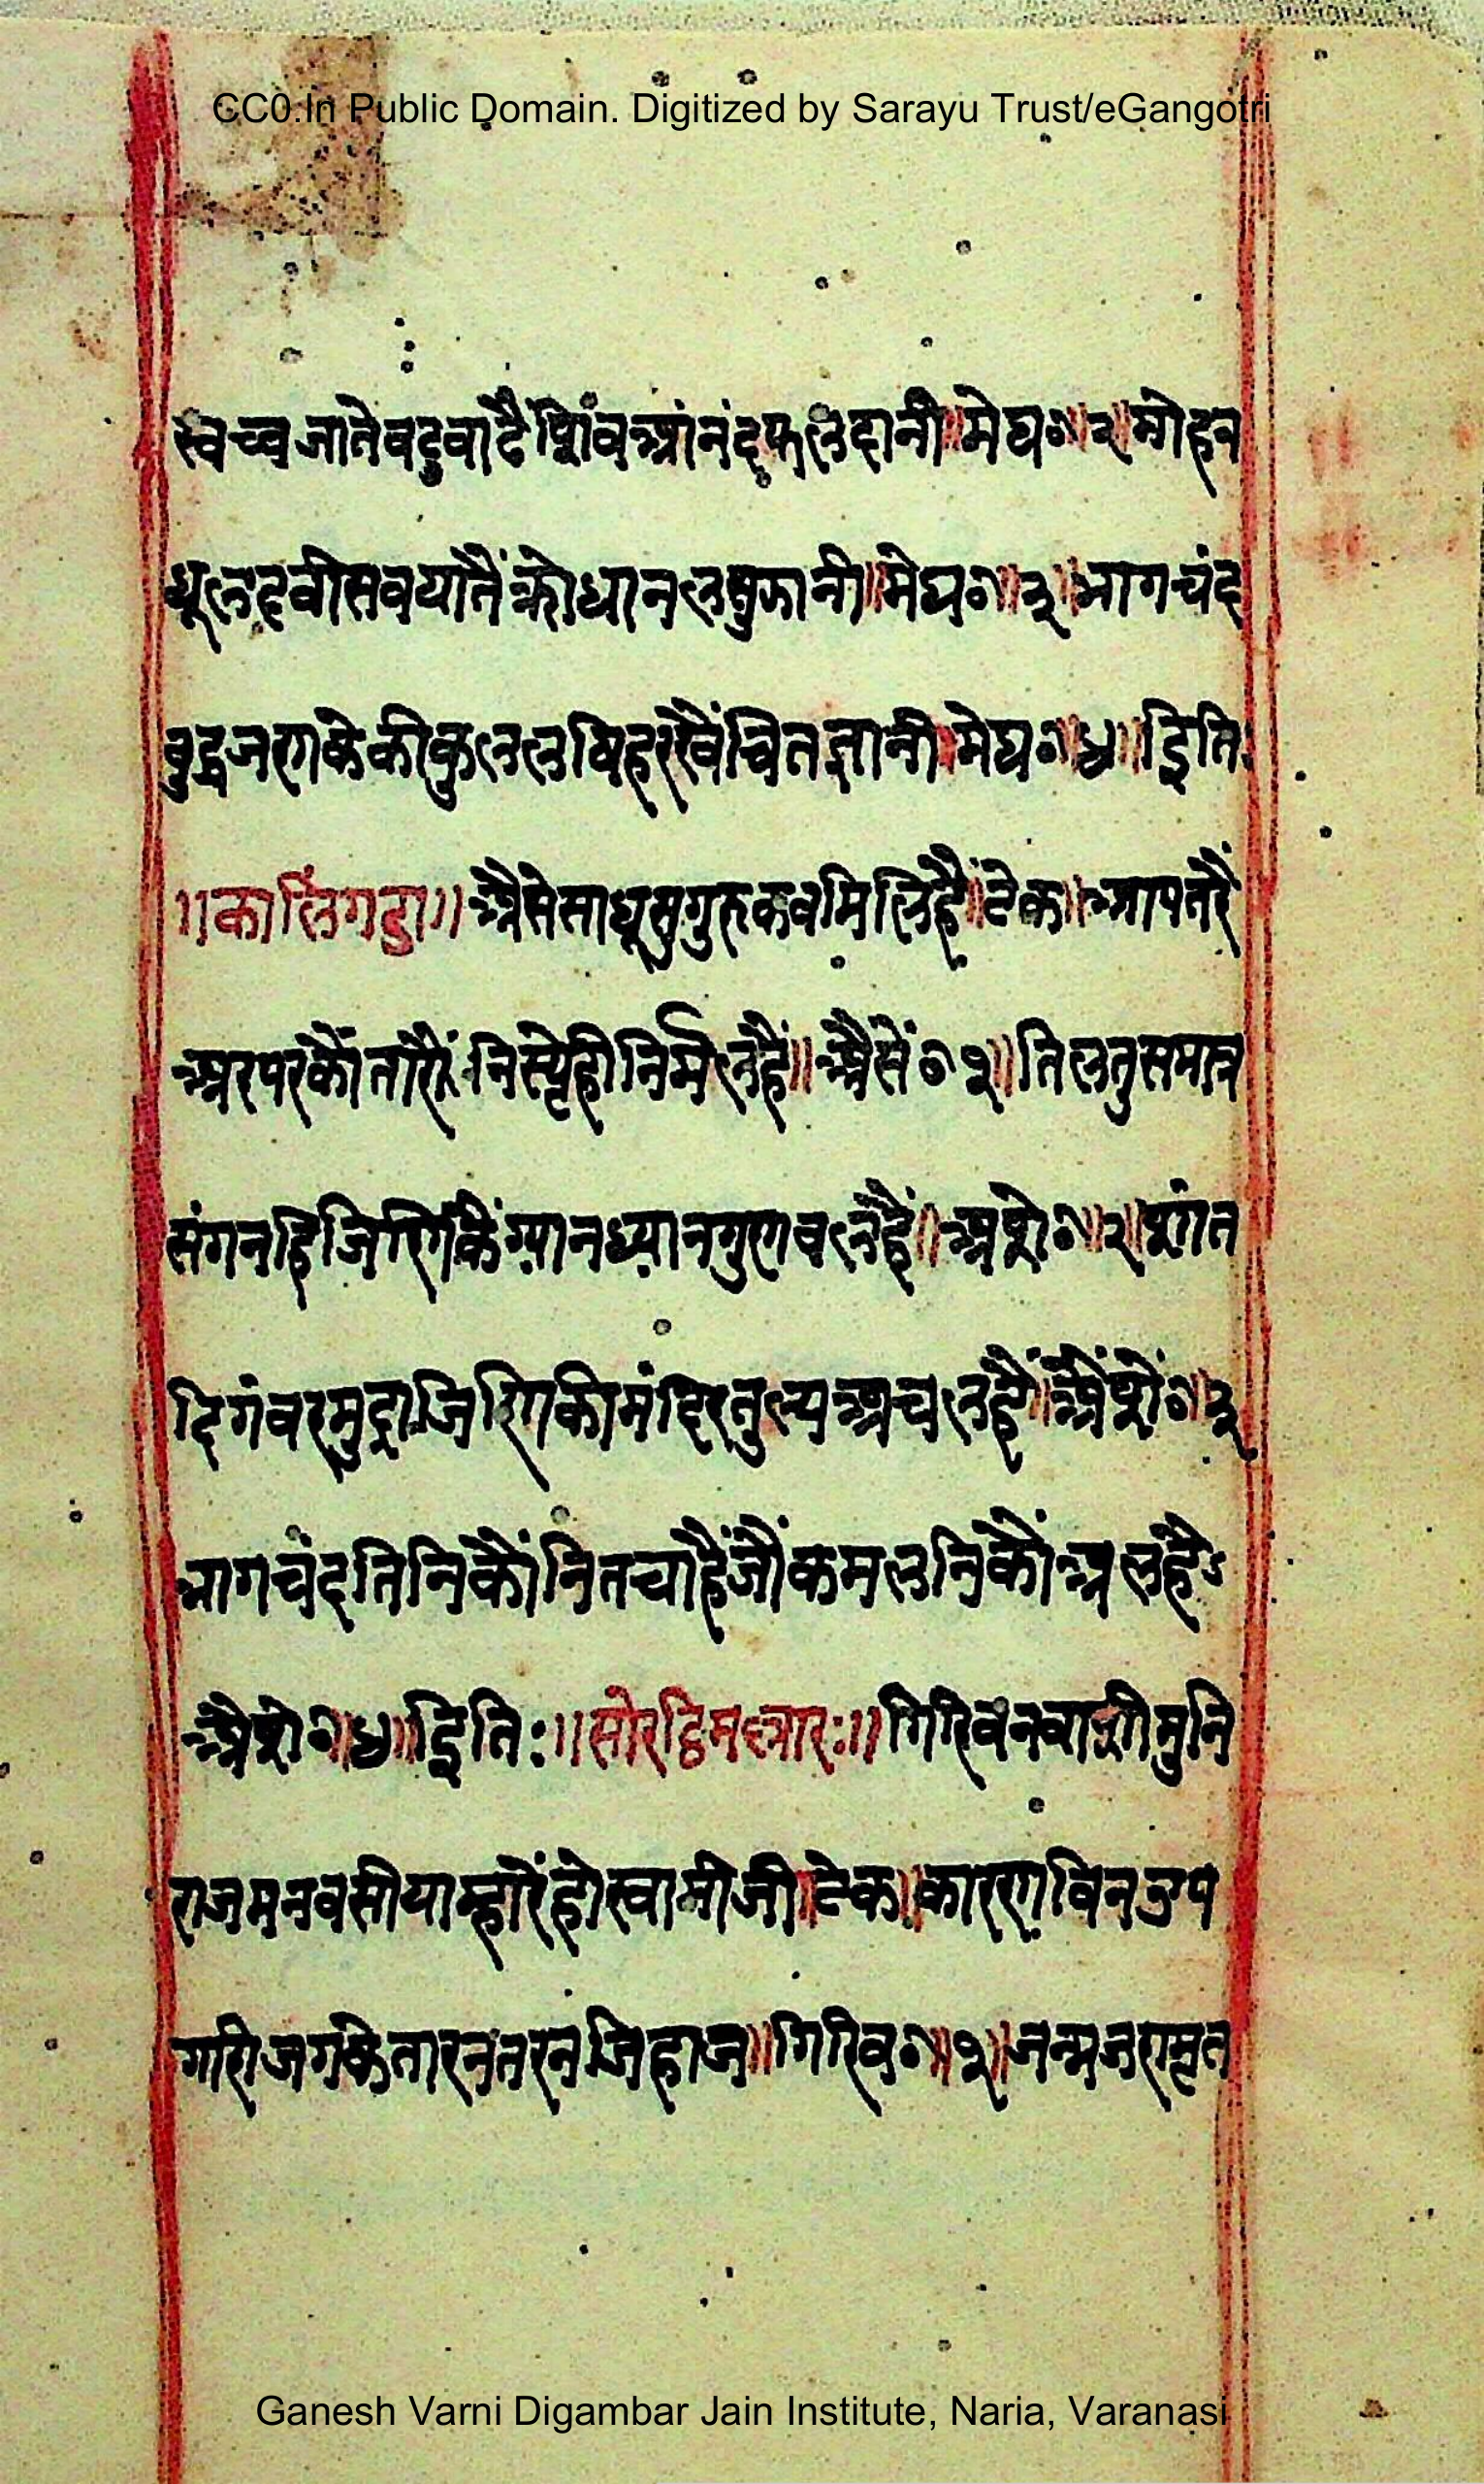 CC0.In Public Domain. Digitized by Sarayu Trust/eGangotri
स्यचजाते बहु बाढै शिव आंनंद फल दानी॥मेघ०॥२॥मोहन
धूल दवी सव यातैं क्रोधानल सुझानी॥मेघ०॥३॥भागचंद
बुद्धजण केकी कुल लषि हरखैं चित ज्ञानी॥मेघ०॥४॥इति
॥कालिंगडा॥ अैसे साधू सुगुरु कब मिलिहै॥टेक॥आप तरै
अर पर कौं तारैं निस्प्रेही निर्मल हैं॥अैसें०१॥तिल तुस मात्र
संग नहि जिणिकैं ग्यान ध्यान गुण वल हैं॥अैशे०॥२॥शांत
दिगंवर मुद्रा जिणिकी मंदिर तुल्य अचल हैं॥अैशें०॥३
भागचंद तिनिकौं नित चाहैं जौं कमलनि कौं अल हैं
अैशे०॥४॥इति:॥सोरठि मल्लार:॥गिरि वनवाशी मुनि
राज मन वसीया म्हारें हो स्वामीजी॥टेक॥कारण विन उप
गारी जग के तारन तरन जिहाज॥गिरिव०॥१॥जन्म जरा मृत
Ganesh Varni Digambar Jain Institute, Naria, Varanasi